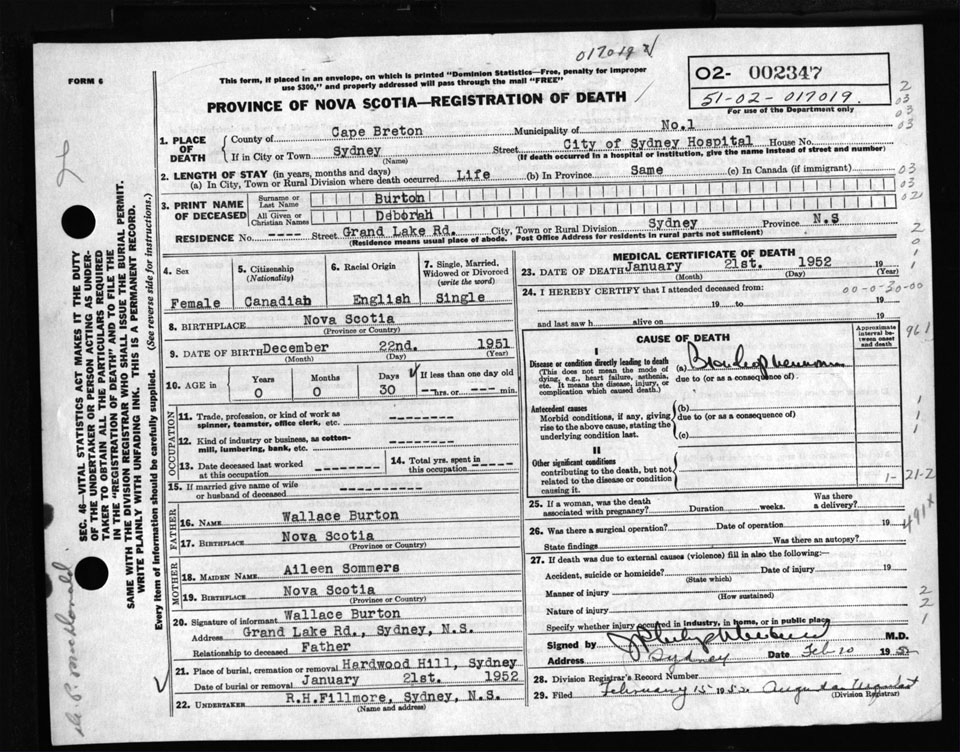 017019
FORM 6
This form, if placed in an envelope, on which is printed "Dominion Statistics—Free, penalty for improper
use $300," and properly addressed will pass through the mail "FREE"
02- 002347
51-02-017019.
For use of the Department only
PROVINCE OF NOVA SCOTIA—REGISTRATION OF DEATH
1. PLACE OF DEATH { County of Cape Breton Municipality of No.1
If in City or Town Sydney (Name) Street City of Sydney Hospital House No.
(If death occurred in a hospital or institution, give the name instead of street and number)
2. LENGTH OF STAY (in years, months and days)
(a) In City, Town or Rural Division where death occurred Life (b) In Province Same (c) In Canada (if immigrant)
3. PRINT NAME OF DECEASED
Surname or Last Name Burton
All Given or Christian Names Deborah
RESIDENCE No. ---- Street Grand Lake Rd. City, Town or Rural Division Sydney Province N.S
(Residence means usual place of abode. Post Office Address for residents in rural parts not sufficient)
4. Sex Female
5. Citizenship (Nationality) Canadian
6. Racial Origin English
7. Single, Married, Widowed or Divorced (write the word) Single
8. BIRTHPLACE Nova Scotia
(Province or Country)
9. DATE OF BIRTH December 22nd. 1951
(Month) (Day) (Year)
10. AGE in Years 0 Months 0 Days 30 If less than one day old
---- hrs. or ---- min.
OCCUPATION
11. Trade, profession, or kind of work as
spinner, teamster, office clerk, etc. --------
12. Kind of industry or business, as cotton-
mill, lumbering, bank, etc. --------
13. Date deceased last worked
at this occupation --------
14. Total yrs. spent in
this occupation -----
15. If married give name of wife
or husband of deceased ----------
FATHER
16. NAME Wallace Burton
17. BIRTHPLACE Nova Scotia
(Province or Country)
MOTHER
18. MAIDEN NAME Aileen Sommers
19. BIRTHPLACE Nova Scotia
(Province or Country)
20. Signature of informant Wallace Burton
Address Grand Lake Rd., Sydney, N.S.
Relationship to deceased Father
21. Place of burial, cremation or removal Hardwood Hill, Sydney
Date of burial or removal January 21st. 1952
22. UNDERTAKER R.H.Fillmore, Sydney, N.S.
(Name and address)
MEDICAL CERTIFICATE OF DEATH
23. DATE OF DEATH January 21st. 1952
(Month) (Day) (Year)
24. I HEREBY CERTIFY that I attended deceased from:
00-0-30-00
19 to 19
and last saw h alive on 19
CAUSE OF DEATH
Approximate interval between onset and death
I
Disease or condition directly leading to death (a)
(This does not mean the mode of
dying, e.g., heart failure, asthenia,
etc. It means the disease, injury, or
complication which caused death.)
due to (or as a consequence of)
Antecedent causes (b)
Morbid conditions, if any, giving due to (or as a consequence of)
rise to the above cause, stating the
underlying condition last. (c)
II
Other significant conditions
contributing to the death, but not
related to the disease or condition
causing it.
25. If a woman, was the death
associated with pregnancy? Duration weeks. Was there a delivery?
26. Was there a surgical operation? Date of operation 19
State findings Was there an autopsy?
27. If death was due to external causes (violence) fill in also the following:
Accident, suicide or homicide? Date of injury 19
(State which)
Manner of injury
(How sustained)
Nature of injury
Specify whether injury occurred in industry, in home, or in public place
Signed by M.D.
Address Sydney Date Feb 10 1952
28. Division Registrar's Record Number
29. Filed February 15 1952
(Division Registrar)
SEC. 46—VITAL STATISTICS ACT MAKES IT THE DUTY
OF THE UNDERTAKER OR PERSON ACTING AS UNDER-
TAKER TO OBTAIN ALL THE PARTICULARS REQUIRED
IN THE "REGISTRATION OF DEATH" AND TO FILE THE
SAME WITH THE DIVISION REGISTRAR WHO SHALL ISSUE THE BURIAL PERMIT.
WRITE PLAINLY WITH UNFADING INK. THIS IS A PERMANENT RECORD.
Every item of information should be carefully supplied. (See reverse side for instructions.)